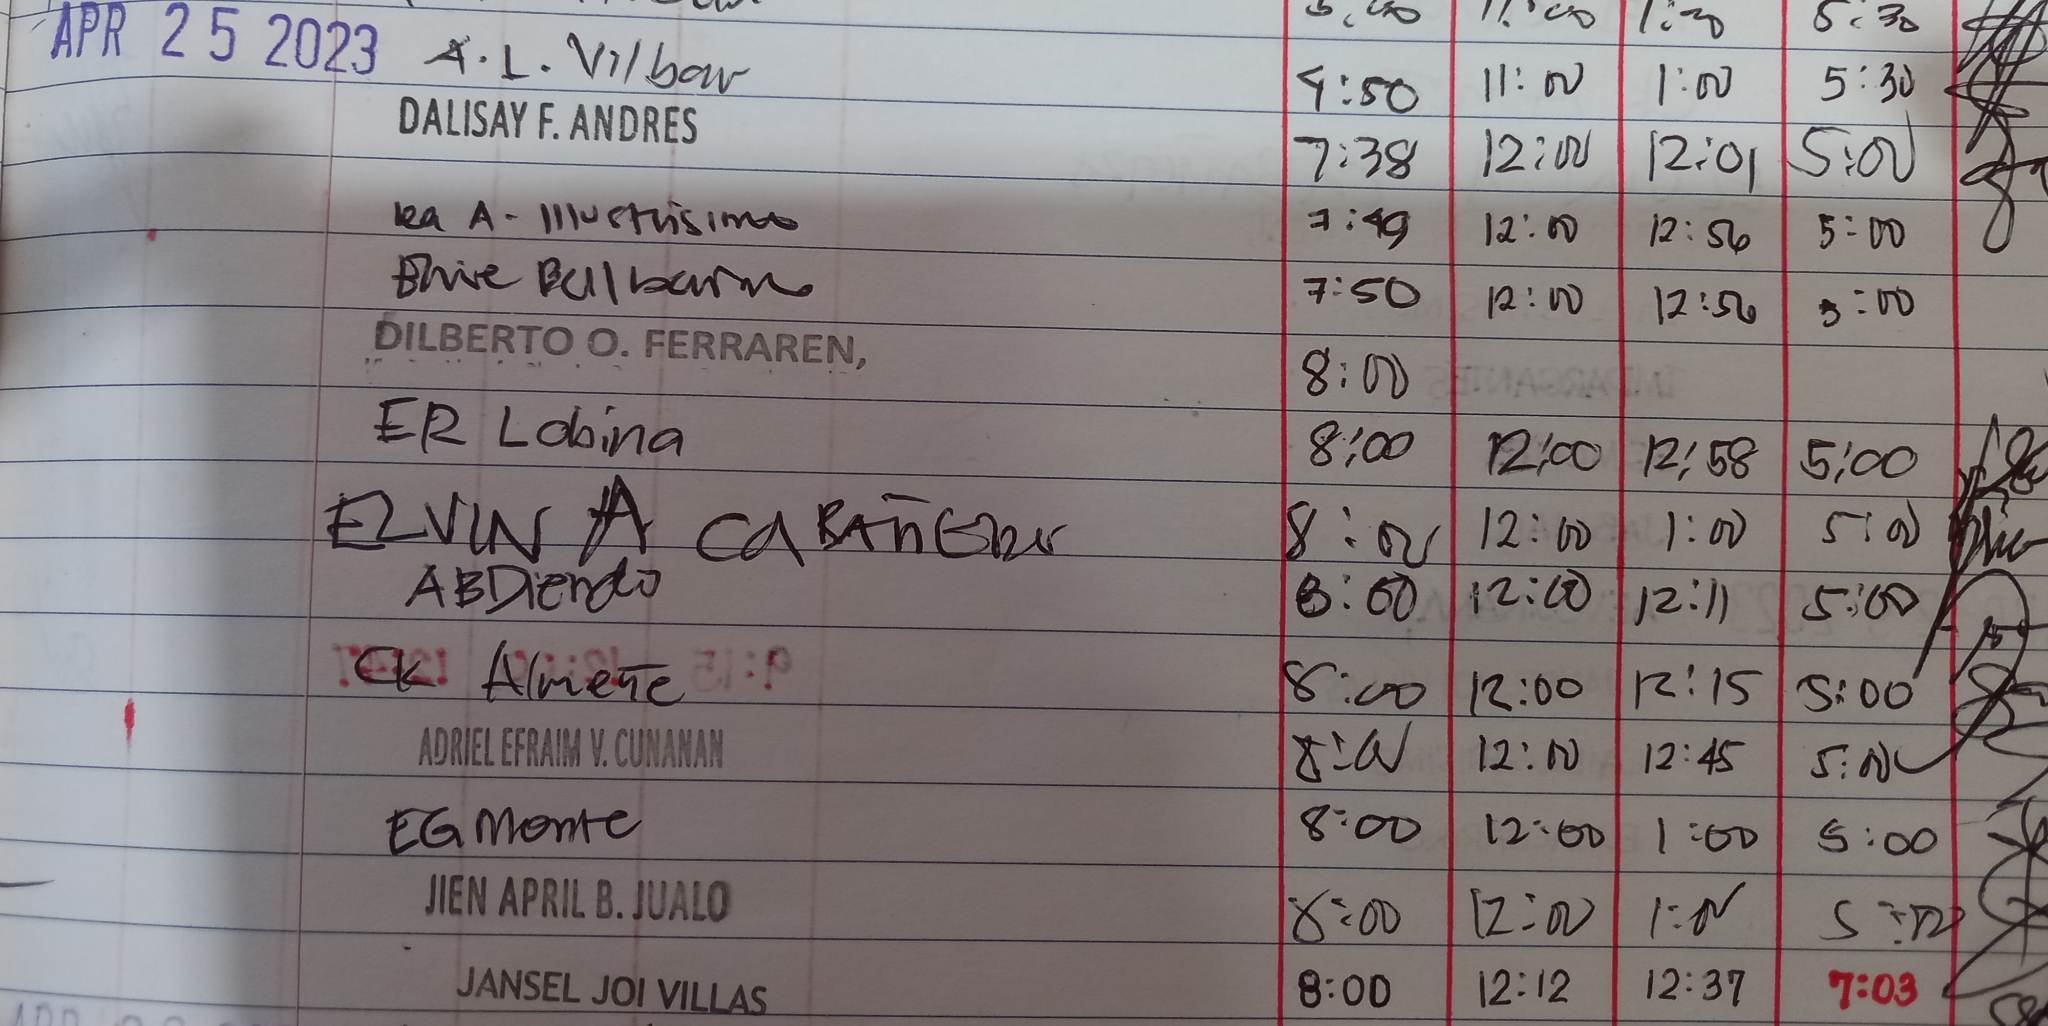 5:00 11:00 1:30 5:30
APR 25 2023 A.L. Vilbar 4:50 11:00 1:00 5:30
DALISAY F. ANDRES 7:38 12:00 12:01 5:00
A. Illustrisimo 7:49 12:00 12:56 5:00
7:50 12:00 12:56 5:00
DILBERTO O. FERRAREN, 8:00
ER Lobina 8:00 12:00 12:58 5:00
ELVIN A 8:00 12:00 1:00 5:00
ABDiendo 8:00 12:00 12:11 5:00
CK Almeñe 8:00 12:00 12:15 5:00
ADRIEL EFRAIM V. CUNANAN 8:00 12:00 12:45 5:00
EG Monte 8:00 12:00 1:00 5:00
JIEN APRIL B. JUALO 8:00 12:00 1:00 5:00
JANSEL JOI VILLAS 8:00 12:12 12:37 7:03